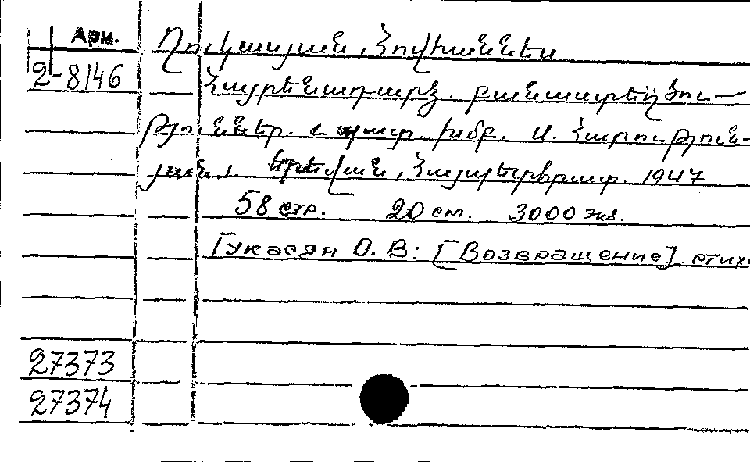 Арм.
Ղուկասյան, Հովհաննես
2-8146
Հայրենադարձ. բանաստեղծու-
թյուններ. խմբ. Ս. Հարություն-
յան. Երեվան, Հայպետհրատ. 1947
58 стр. 20 см. 3000 экз.
Гукасян О. В: [Возвращение] стих
27373
27374